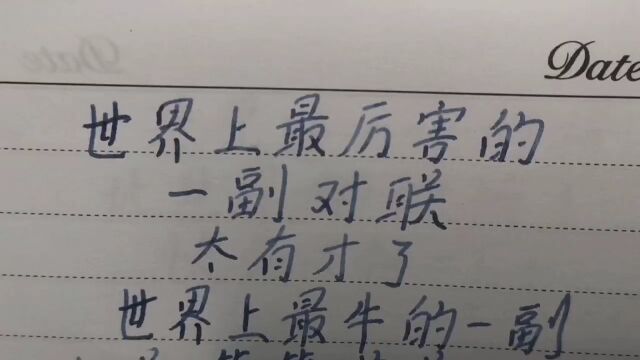 Date
世界上最厉害的
一副对联
太有才了
世界上最牛的一副